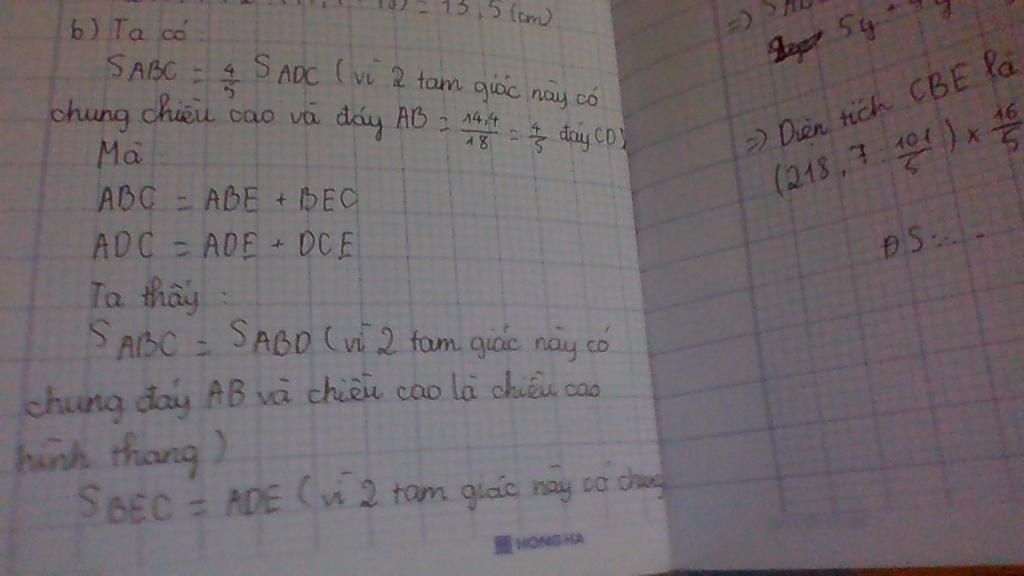 = 13,5 (cm)
b) Ta có
S ABC = 4/5 S ADC (vì 2 tam giác này có
chung chiều cao và đáy AB = 14,4/18 = 4/5 đáy CD)
Mà
ABC = ABE + BEC
ADC = ADE + DCE
Ta thấy :
S ABC = S ABD (vì 2 tam giác này có
chung đáy AB và chiều cao là chiều cao
hình thang)
S BEC = ADE (vì 2 tam giác này có chung
HONG HA
=>
5y
=> Diện tích CBE là
(218,7 : 101/5) × 16/5
ĐS:...